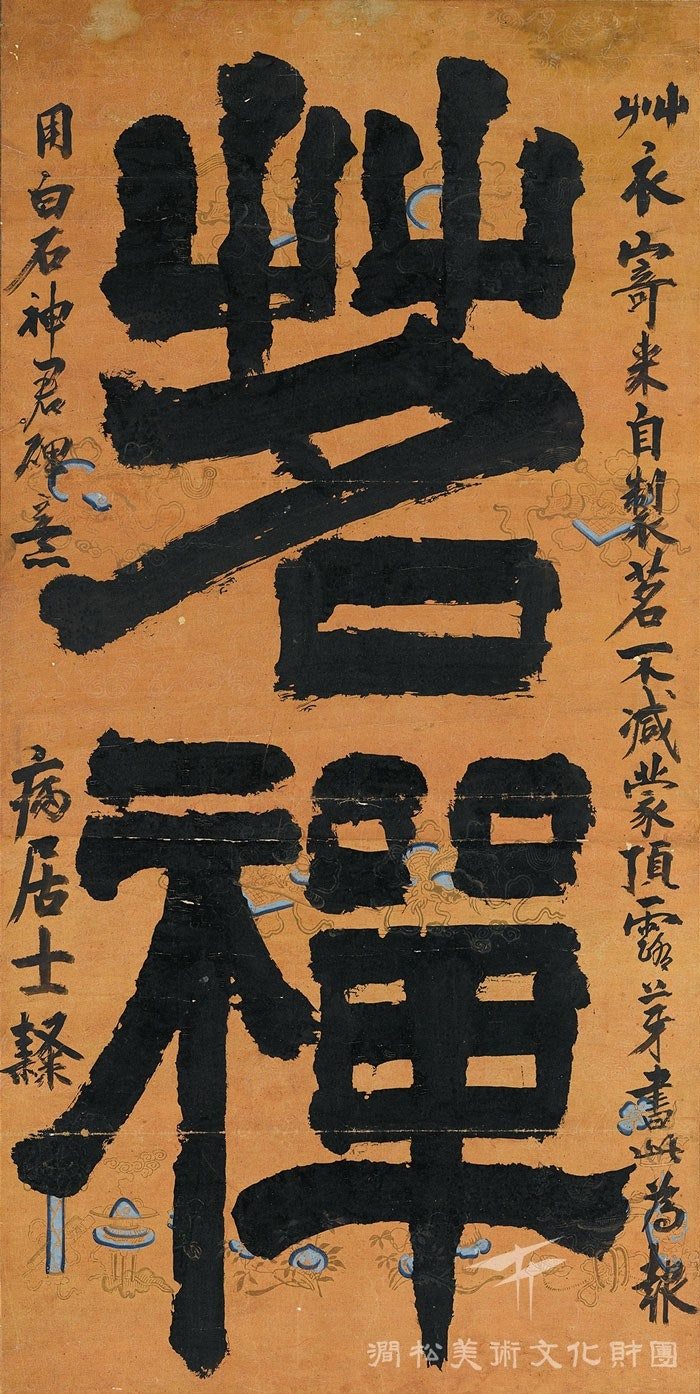 茗禪
艸衣寄来自製茗不減蒙頂露芽書此為報
用白石神君碑意
病居士隷
澗松美術文化財團